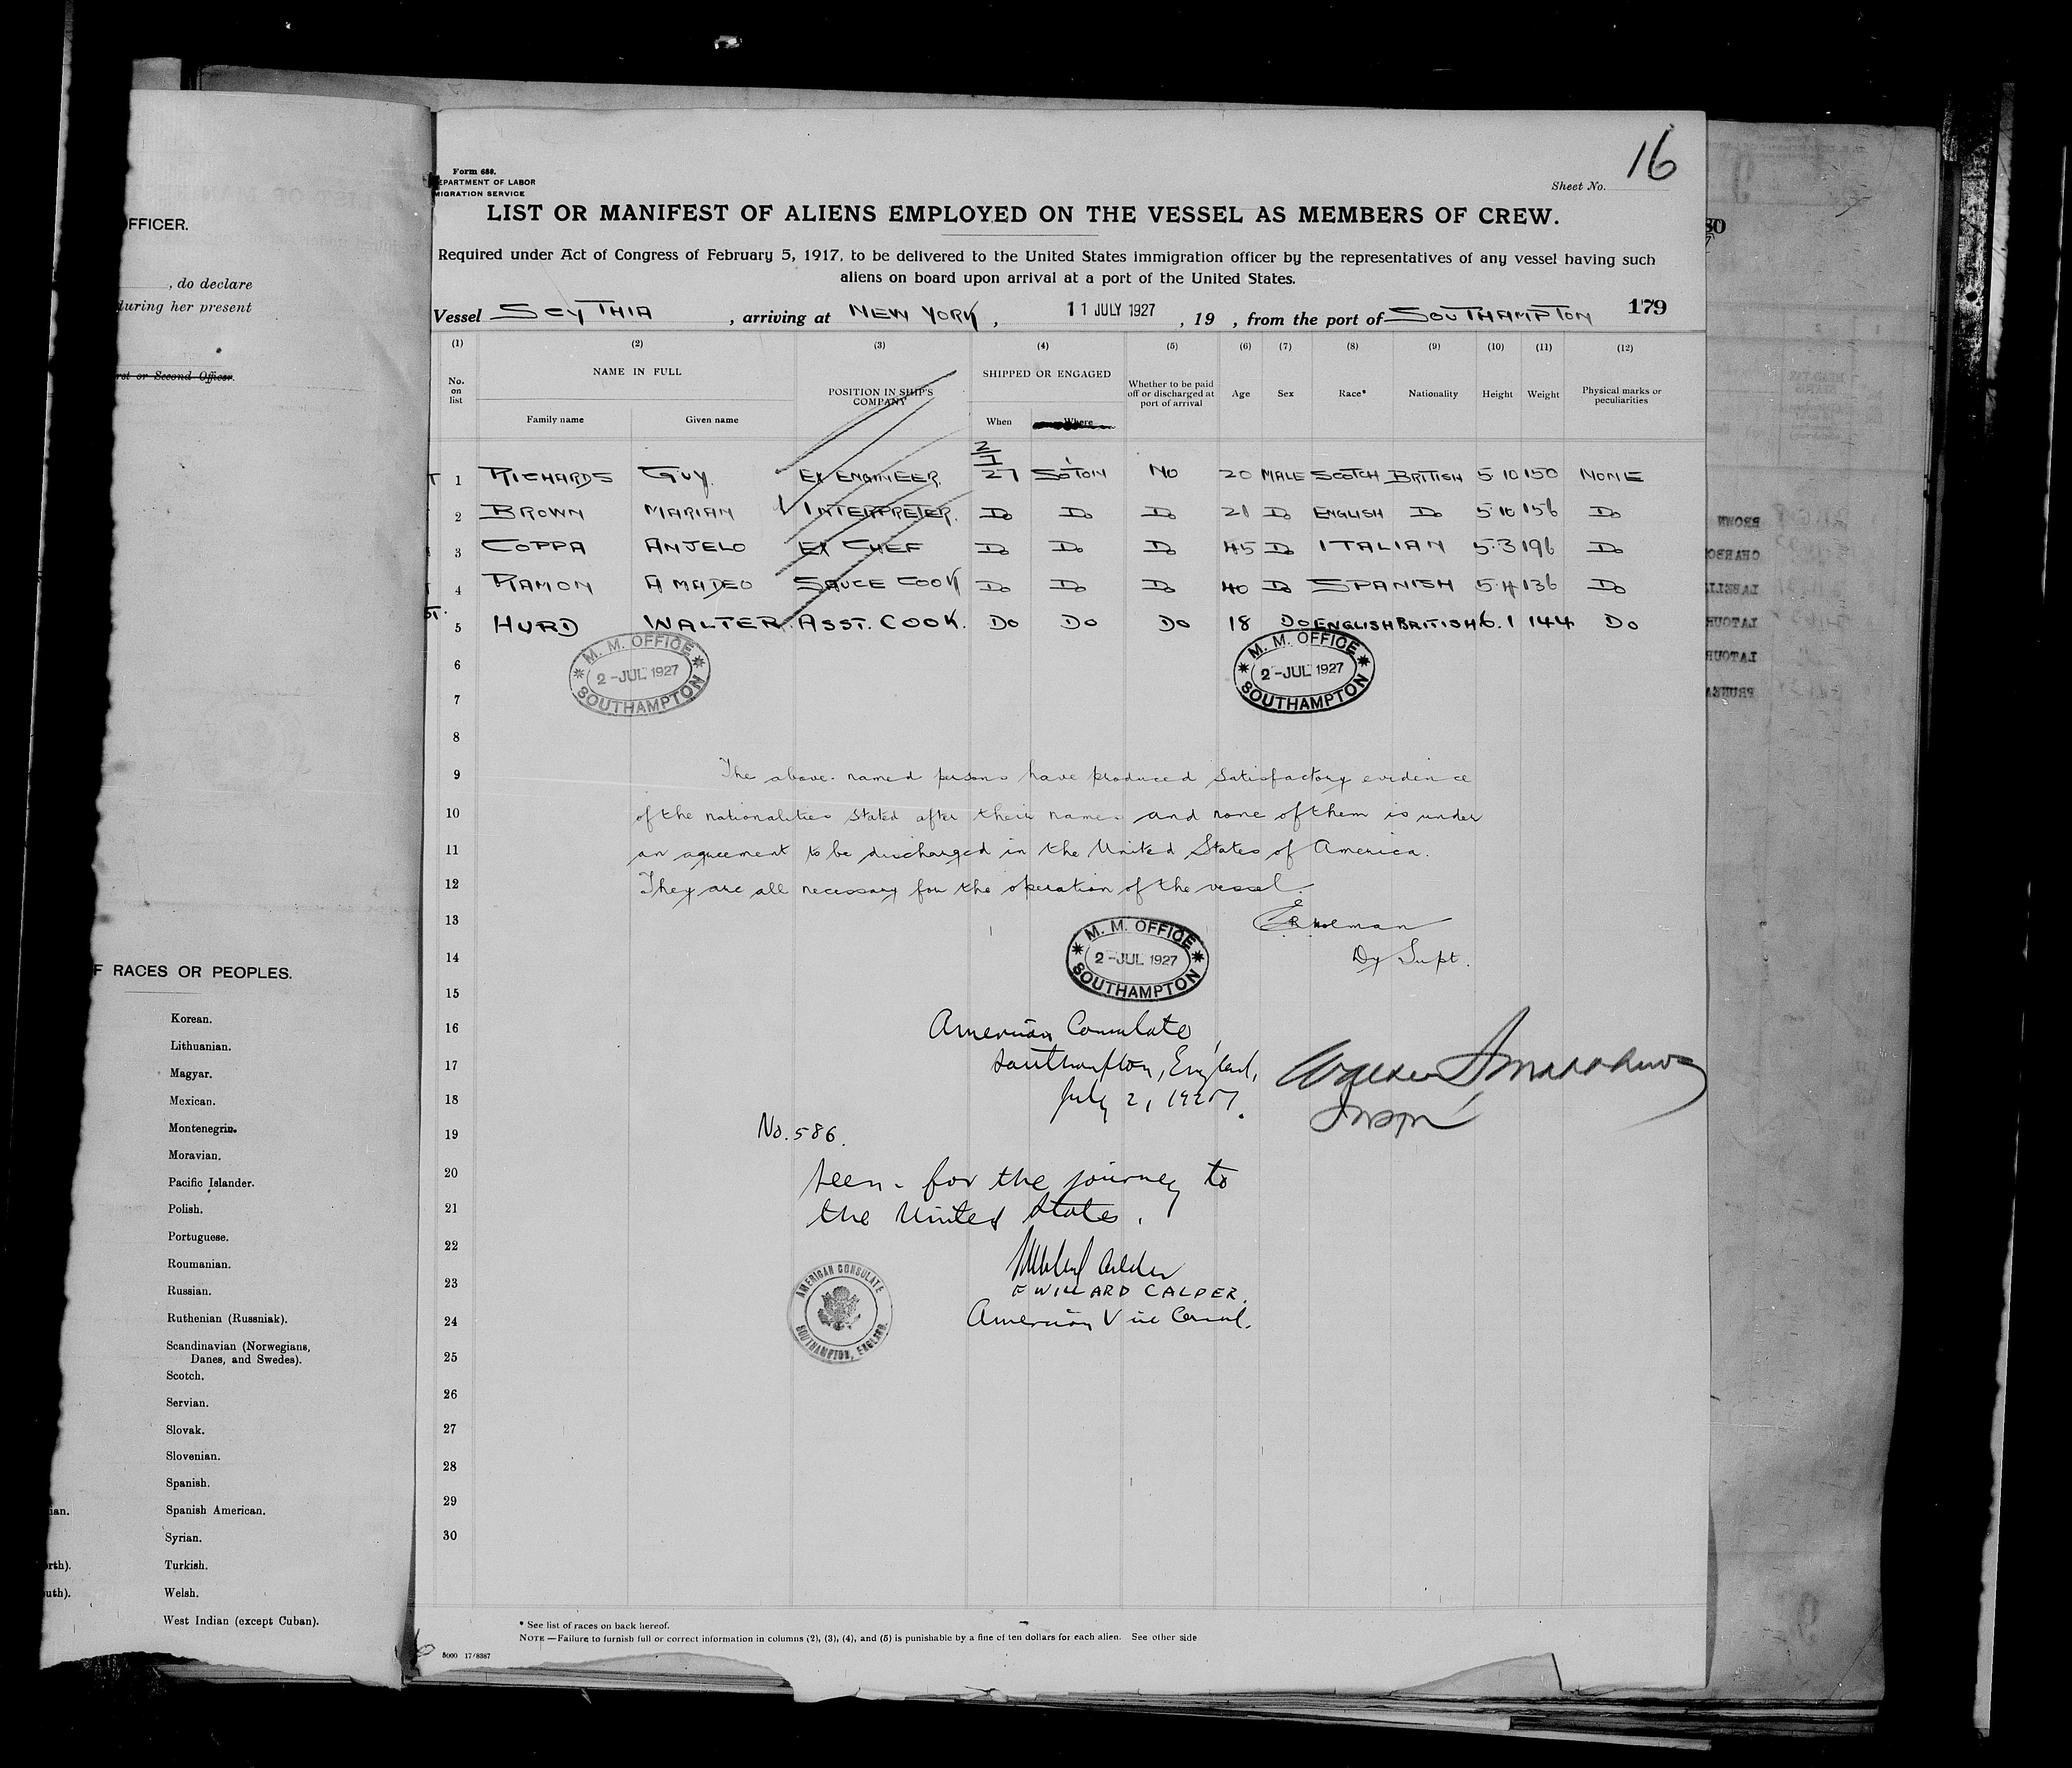 FFICER.
, do declare
during her present
rst or Second Officer.
F RACES OR PEOPLES.
Korean.
Lithuanian.
Magyar.
Mexican.
Montenegrin.
Moravian.
Pacific Islander.
Polish.
Portuguese.
Roumanian.
Russian.
Ruthenian (Russniak).
Scandinavian (Norwegians,
Danes, and Swedes).
Scotch.
Servian.
Slovak.
Slovenian.
Spanish.
ian. Spanish American.
Syrian.
rth). Turkish.
uth). Welsh.
West Indian (except Cuban).
16
Form 680.
EPARTMENT OF LABOR
MIGRATION SERVICE
Sheet No.
LIST OR MANIFEST OF ALIENS EMPLOYED ON THE VESSEL AS MEMBERS OF CREW.
Required under Act of Congress of February 5, 1917, to be delivered to the United States immigration officer by the representatives of any vessel having such
aliens on board upon arrival at a port of the United States.
179
Vessel SCYTHIA, arriving at NEW YORK, 11 JULY 1927, 19 , from the port of SOUTHAMPTON
(1) (2) (3) (4) (5) (6) (7) (8) (9) (10) (11) (12)
No. on list NAME IN FULL POSITION IN SHIP'S COMPANY SHIPPED OR ENGAGED Whether to be paid off or discharged at port of arrival Age Sex Race* Nationality Height Weight Physical marks or peculiarities
Family name Given name When Where
2
7
T 1 RICHARDS GUY. EX ENGINEER. 27 SOTON NO 20 MALE SCOTCH BRITISH 5 10 150 NONE
2 BROWN MARIAN INTERPRETER. DO DO DO 21 DO ENGLISH DO 5 10 156 DO
3 COPPA ANJELO EX CHEF DO DO DO 45 DO ITALIAN 5.3 196 DO
4 RAMON AMADEO SAUCE COOK DO DO DO 40 DO SPANISH 5.4 136 DO
ST. 5 HURD WALTER. ASST. COOK. DO DO DO 18 DO ENGLISH BRITISH 6.1 144 DO
6
M. M. OFFICE
2-JUL 1927
SOUTHAMPTON
M. M. OFFICE
2-JUL 1927
SOUTHAMPTON
7
8
9 The above named persons have produced satisfactory evidence
10 of the nationalities stated after their names and none of them is under
11 an agreement to be discharged in the United States of America.
12 They are all necessary for the operation of the vessel.
13
14 Dy Supt.
M. M. OFFICE
2-JUL 1927
SOUTHAMPTON
15
16 American Consulate,
17 Southampton, England,
18 July 2, 1927.
19 No. 586.
20 Seen for the journey to
21 the United States.
22
23 F WILLARD CALDER.
24 American Vice Consul.
AMERICAN CONSULATE
SOUTHAMPTON, ENGLAND
25
26
27
28
29
30
* See list of races on back hereof.
NOTE—Failure to furnish full or correct information in columns (2), (3), (4), and (5) is punishable by a fine of ten dollars for each alien. See other side
5000 17/8387